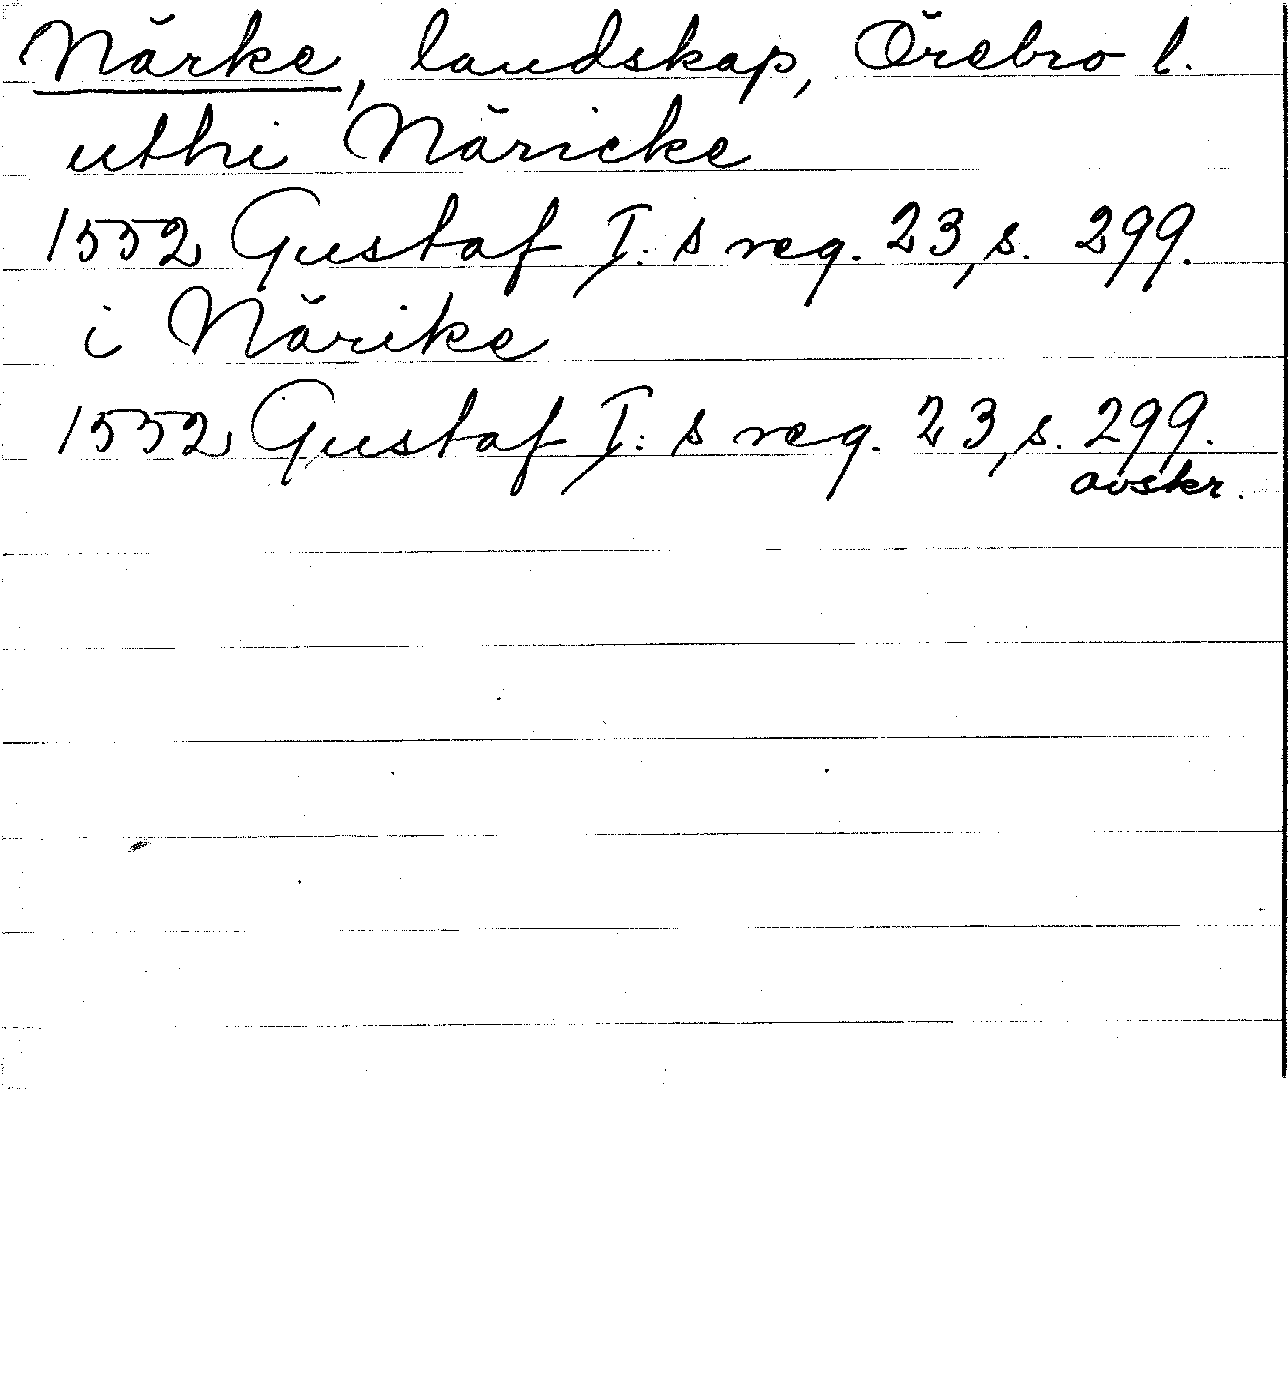 Närke, landskap, Örebro l.
uthi Näricke
1552 Gustaf I: s reg. 23, s. 299.
i Närike
1552 Gustaf I: s reg. 23, s. 299.
avskr.